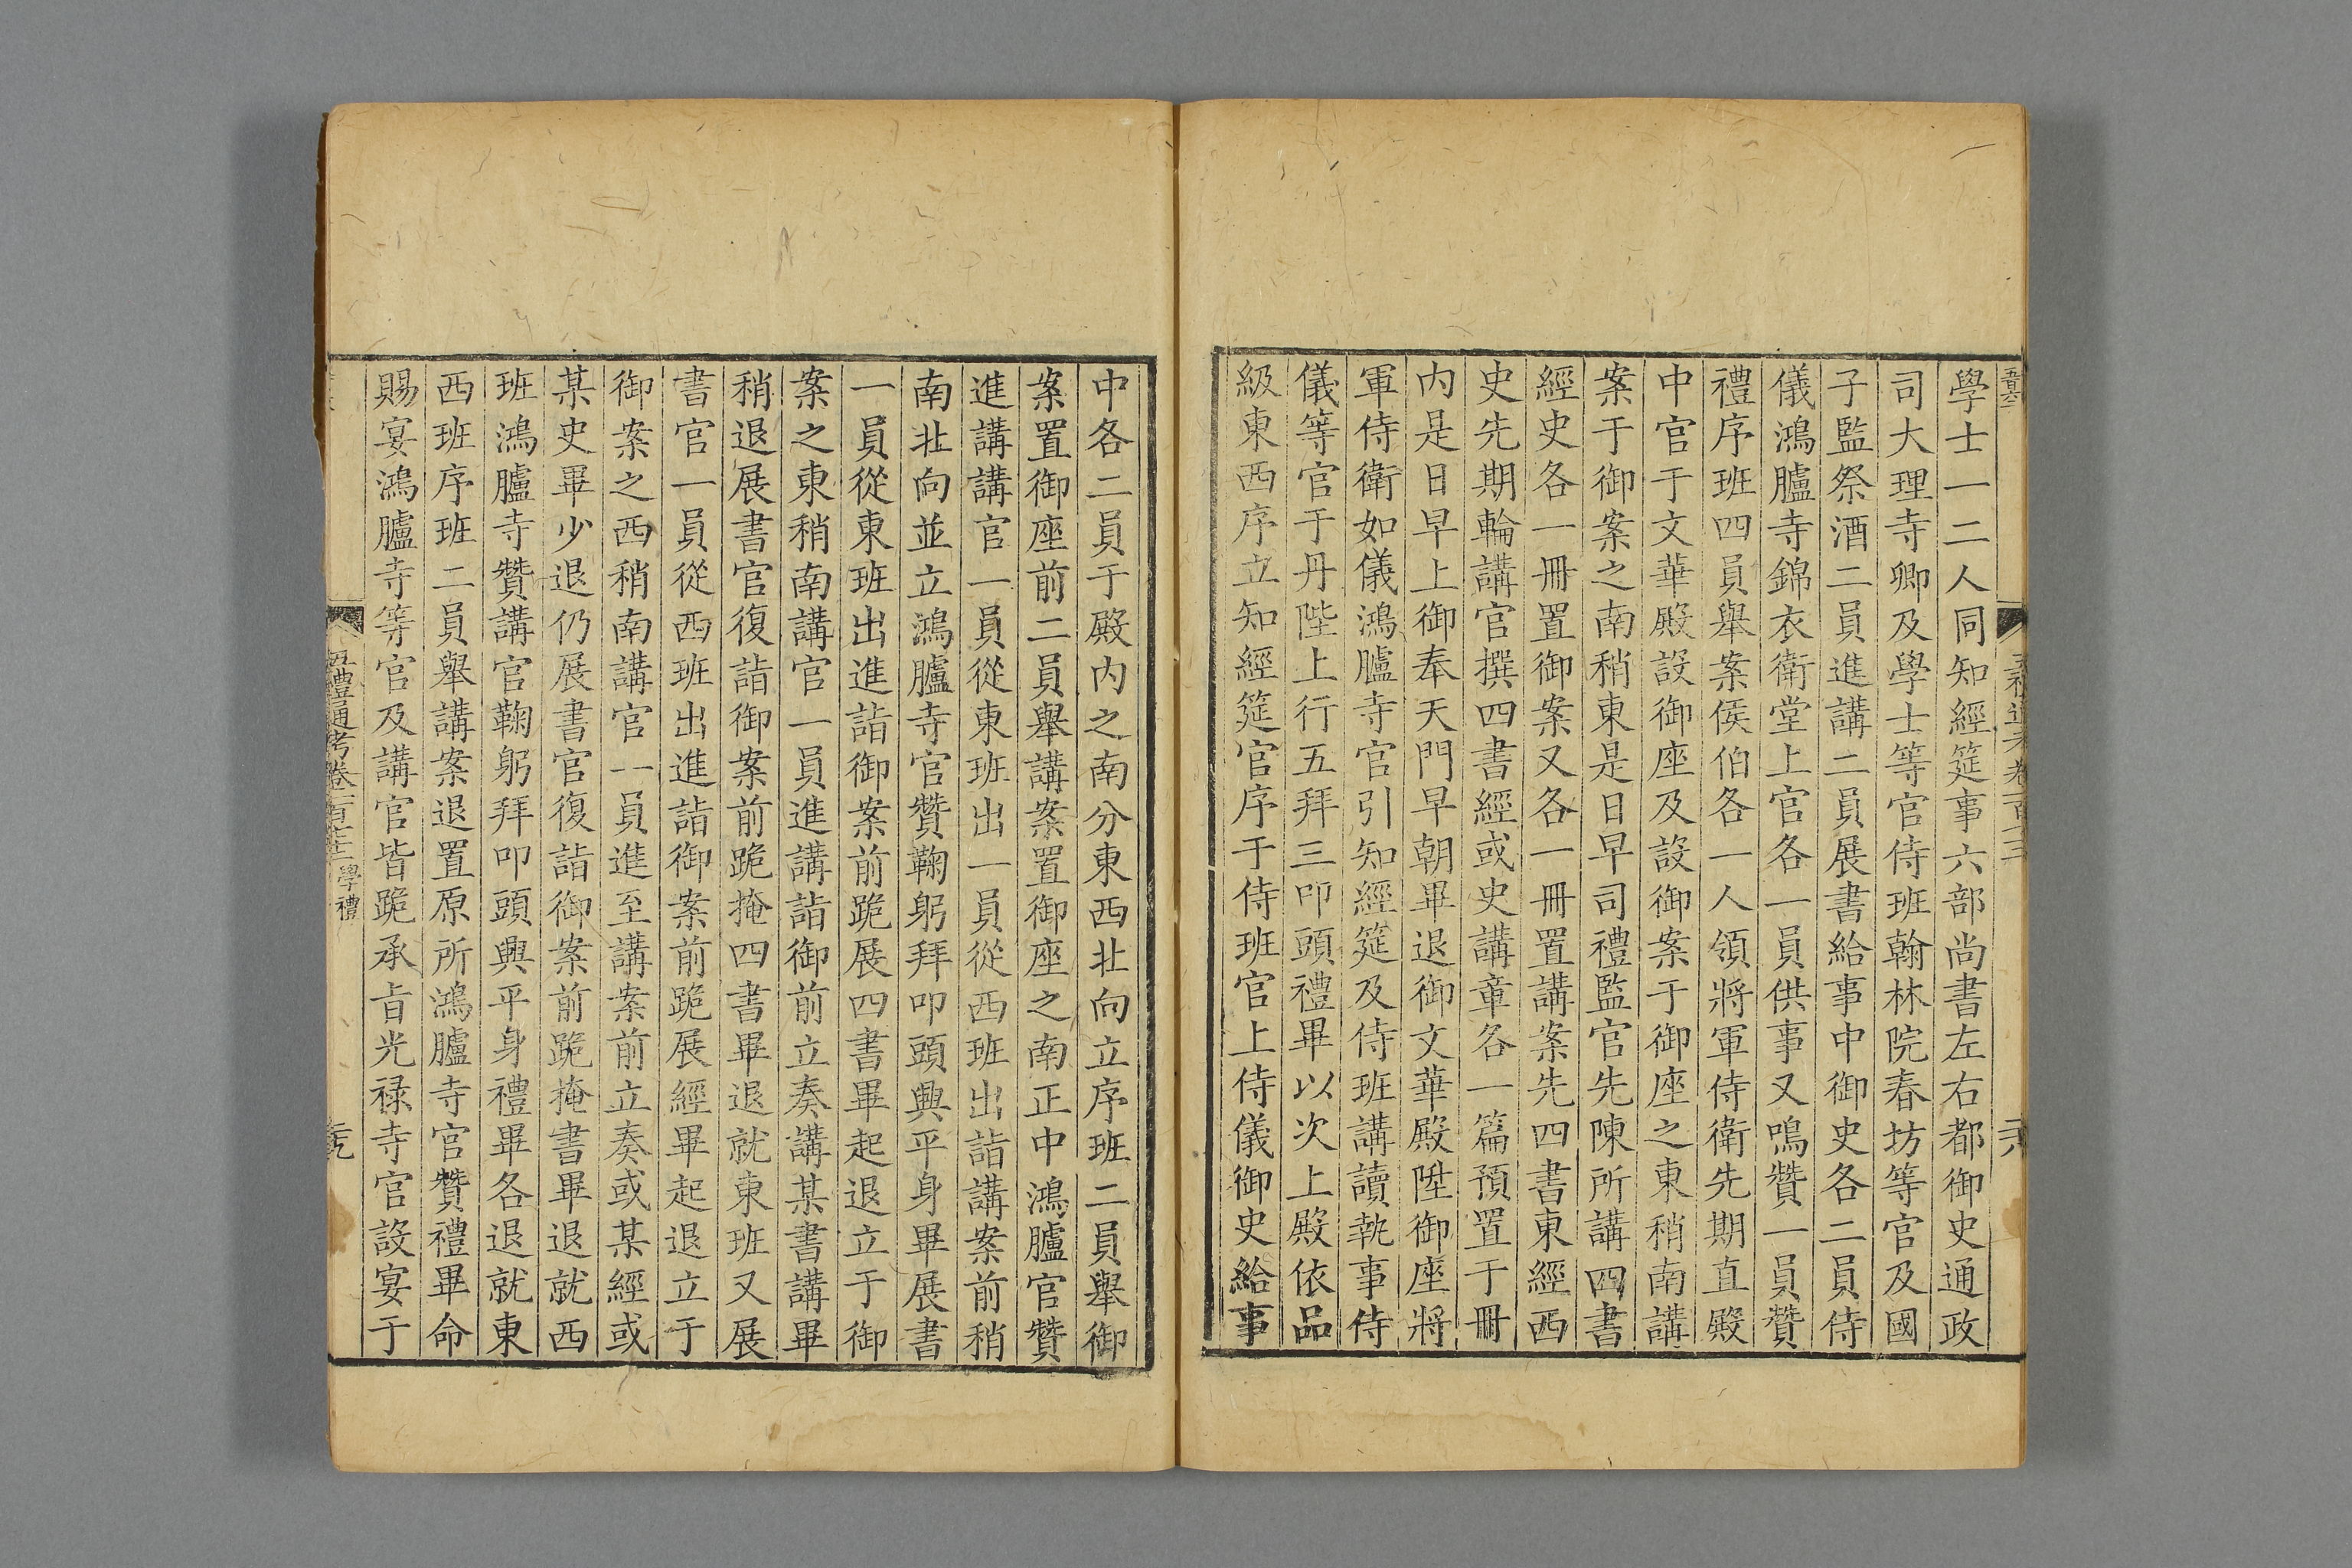 學士一二人同知經筵事六部尚書左右都御史通政
司大理寺卿及學士等官侍班翰林院春坊等官及國
子監祭酒二員進講二員展書給事中御史各二員侍
儀鴻臚寺錦衣衛堂上官各一員供事又鳴贊一員贊
禮序班四員舉案侯伯各一人領將軍侍衛先期直殿
中官于文華殿設御座及設御案于御座之東稍南講
案于御案之南稍東是日早司禮監官先陳所講四書
經史各一冊置御案又各一冊置講案先四書東經西
史先期輪講官撰四書經或史講章各一篇預置于冊
内是日早上御奉天門早朝畢退御文華殿陞御座將
軍侍衛如儀鴻臚寺官引知經筵及侍班講讀執事侍
儀等官于丹陛上行五拜三叩頭禮畢以次上殿依品
級東西序立知經筵官序于侍班官上侍儀御史給事
中各二員于殿内之南分東西北向立序班二員舉御
案置御座前二員舉講案置御座之南正中鴻臚官贊
進講講官一員從東班出一員從西班出詣講案前稍
南北向並立鴻臚寺官贊鞠躬拜叩頭興平身畢展書
一員從東班出進詣御案前跪展四書畢起退立于御
案之東稍南講官一員進講詣御前立奏講某書講畢
稍退展書官復詣御案前跪掩四書畢退就東班又展
書官一員從西班出進詣御案前跪展經畢起退立于
御案之西稍南講官一員進至講案前立奏或某經或
某史畢少退仍展書官復詣御案前跪掩書畢退就西
班鴻臚寺贊講官鞠躬拜叩頭興平身禮畢各退就東
西班序班二員舉講案退置原所鴻臚寺官贊禮畢命
賜宴鴻臚寺等官及講官皆跪承旨光禄寺官設宴于
五禮通考卷一百七十二 學禮